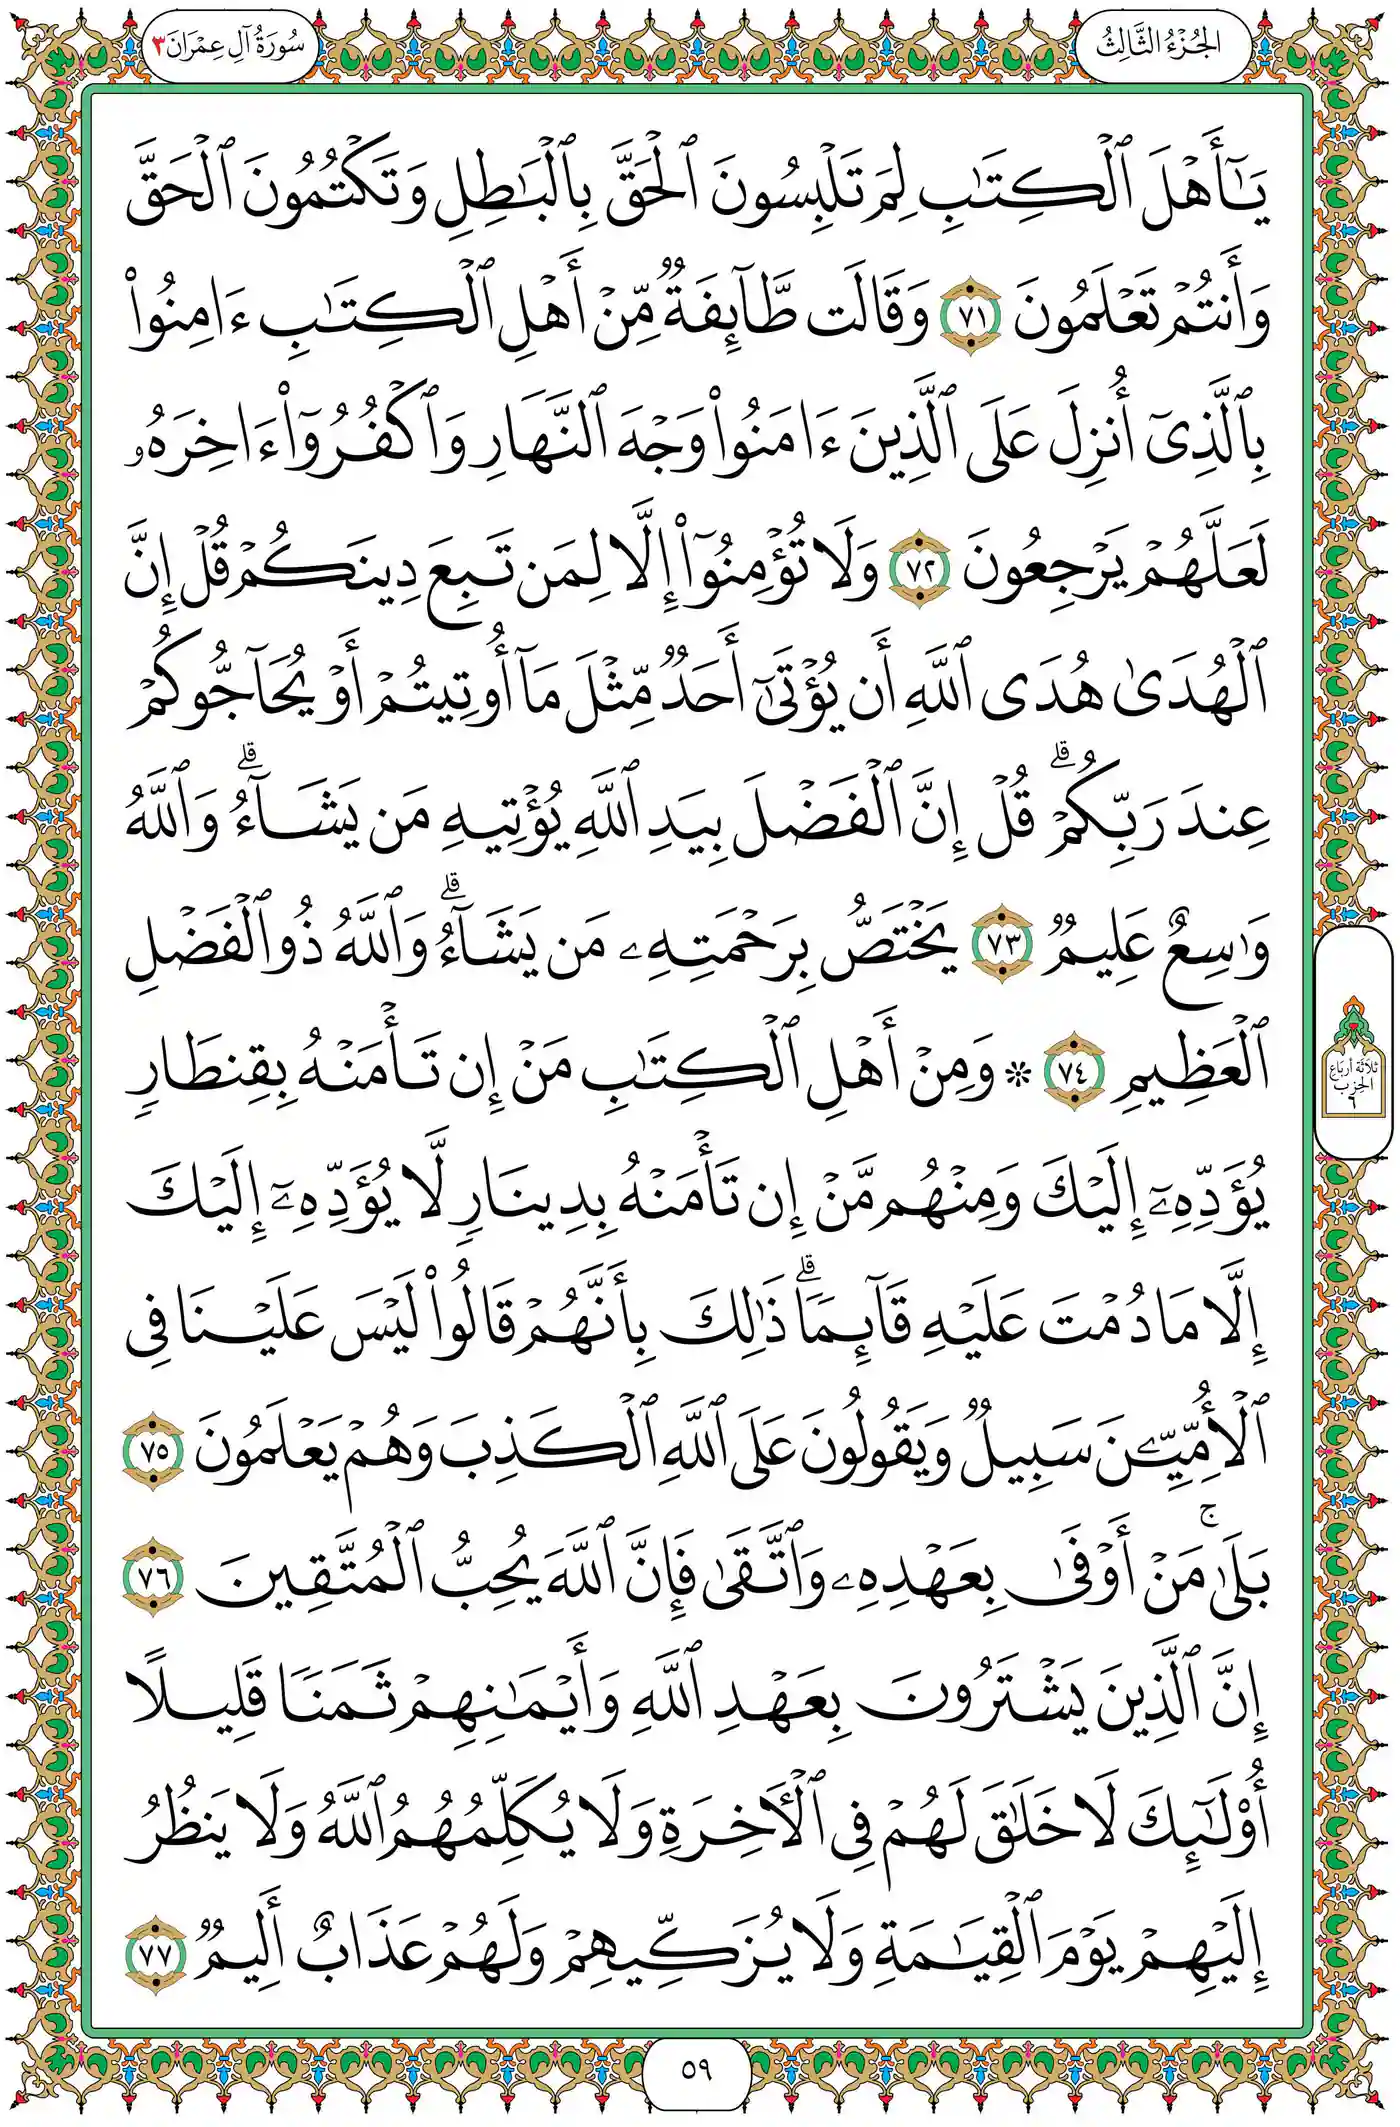 الجُزْءُ الثَّالِثُ
سُورَةُ آلِ عِمْرَانَ ٣
يَـٰٓأَهۡلَ ٱلۡكِتَـٰبِ لِمَ تَلۡبِسُونَ ٱلۡحَقَّ بِٱلۡبَـٰطِلِ وَتَكۡتُمُونَ ٱلۡحَقَّ
وَأَنتُمۡ تَعۡلَمُونَ ٧١ وَقَالَت طَّآئِفَةٌ مِّنۡ أَهۡلِ ٱلۡكِتَـٰبِ ءَامِنُواْ
بِٱلَّذِىٓ أُنزِلَ عَلَى ٱلَّذِينَ ءَامَنُواْ وَجۡهَ ٱلنَّهَارِ وَٱكۡفُرُوٓاْ ءَاخِرَهُۥ
لَعَلَّهُمۡ يَرۡجِعُونَ ٧٢ وَلَا تُؤۡمِنُوٓاْ إِلَّا لِمَن تَبِعَ دِينَكُمۡ قُلۡ إِنَّ
ٱلۡهُدَىٰ هُدَى ٱللَّهِ أَن يُؤۡتَىٰٓ أَحَدٌ مِّثۡلَ مَآ أُوتِيتُمۡ أَوۡ يُحَآجُّوكُمۡ
عِندَ رَبِّكُمۡۗ قُلۡ إِنَّ ٱلۡفَضۡلَ بِيَدِ ٱللَّهِ يُؤۡتِيهِ مَن يَشَآءُۗ وَٱللَّهُ
وَٰسِعٌ عَلِيمٌ ٧٣ يَخۡتَصُّ بِرَحۡمَتِهِۦ مَن يَشَآءُۗ وَٱللَّهُ ذُو ٱلۡفَضۡلِ
ٱلۡعَظِيمِ ٧٤ ۞ وَمِنۡ أَهۡلِ ٱلۡكِتَـٰبِ مَنۡ إِن تَأۡمَنۡهُ بِقِنطَارٍ
يُؤَدِّهِۦٓ إِلَيۡكَ وَمِنۡهُم مَّنۡ إِن تَأۡمَنۡهُ بِدِينَارٍ لَّا يُؤَدِّهِۦٓ إِلَيۡكَ
إِلَّا مَا دُمۡتَ عَلَيۡهِ قَآئِمًاۗ ذَٰلِكَ بِأَنَّهُمۡ قَالُواْ لَيۡسَ عَلَيۡنَا فِى
ٱلۡأُمِّيِّـۧنَ سَبِيلٌ وَيَقُولُونَ عَلَى ٱللَّهِ ٱلۡكَذِبَ وَهُمۡ يَعۡلَمُونَ ٧٥
بَلَىٰۚ مَنۡ أَوۡفَىٰ بِعَهۡدِهِۦ وَٱتَّقَىٰ فَإِنَّ ٱللَّهَ يُحِبُّ ٱلۡمُتَّقِينَ ٧٦
إِنَّ ٱلَّذِينَ يَشۡتَرُونَ بِعَهۡدِ ٱللَّهِ وَأَيۡمَـٰنِهِمۡ ثَمَنًا قَلِيلًا
أُوْلَـٰٓئِكَ لَا خَلَـٰقَ لَهُمۡ فِى ٱلۡأَخِرَةِ وَلَا يُكَلِّمُهُمُ ٱللَّهُ وَلَا يَنظُرُ
إِلَيۡهِمۡ يَوۡمَ ٱلۡقِيَـٰمَةِ وَلَا يُزَكِّيهِمۡ وَلَهُمۡ عَذَابٌ أَلِيمٌ ٧٧
ثَلَاثَةُ أَرْبَاعِ
الحِزْبِ
٦
٥٩